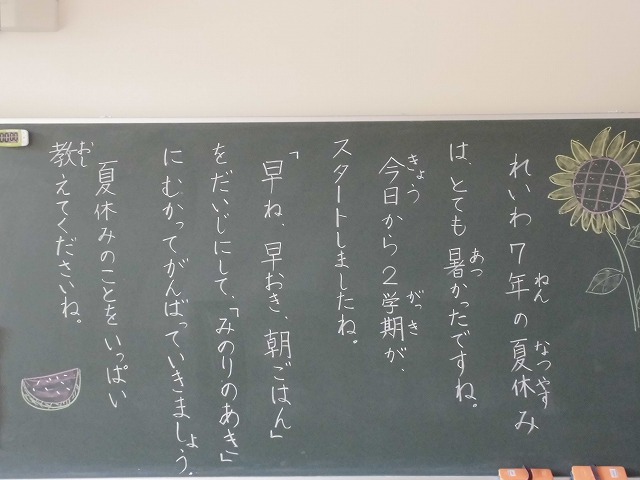 れいわ7年の夏休み
は、とても暑かったですね。
今日から2学期が、
スタートしましたね。
「早ね、早おき、朝ごはん」
をだいじにして、「みのりのあき」
にむかってがんばっていきましょう。
夏休みのことをいっぱい
教えてくださいね。
ねん
なつやす
あつ
きょう
がっき
おし